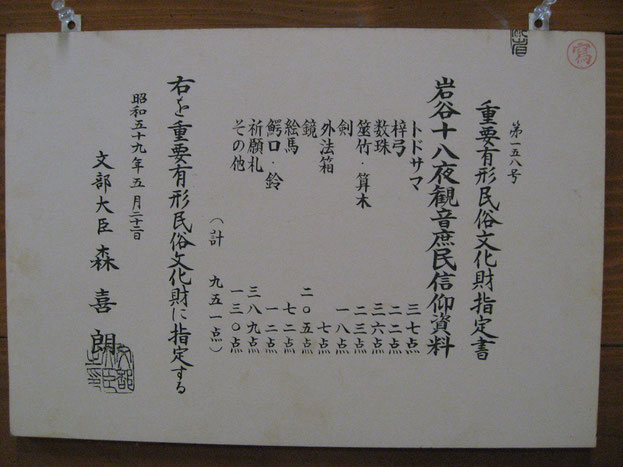 寫
第一五八号
重要有形民俗文化財指定書
岩谷十八夜観音庶民信仰資料
トドサマ 三七点
梓弓 二二点
数珠 三六点
筮竹・算木 二三点
剣 一八点
外法箱 七点
鏡 二〇五点
絵馬 七二点
鰐口・鈴 一二点
祈願札 三八九点
その他 一三〇点
（計 九五一点）
右を重要有形民俗文化財に指定する
昭和五十九年五月二十二日
文部大臣 森喜朗
文部大臣之印